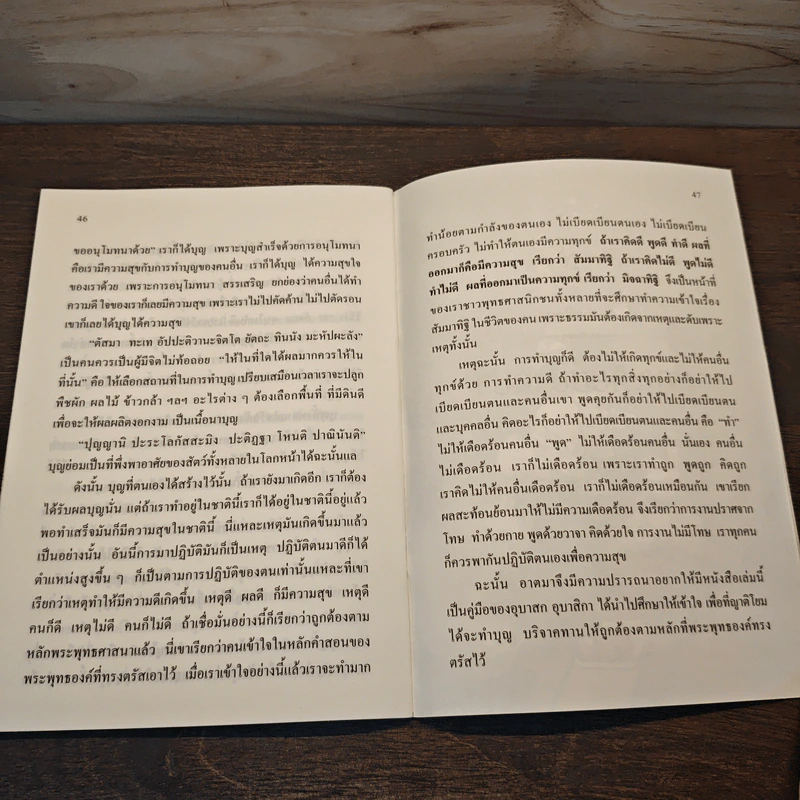 46
ขออนุโมทนาด้วย” เราก็ได้บุญ เพราะบุญสำเร็จด้วยการอนุโมทนา
คือเรามีความสุขกับการทำบุญของคนอื่น เราก็ได้บุญ ได้ความสุขใจ
ของเราด้วย เพราะการอนุโมทนา สรรเสริญ ยกย่องว่าคนอื่นได้ทำ
ความดี ใจของเราก็เลยมีความสุข เพราะเราไม่ไปคัดค้าน ไม่ไปตัดรอน
เขาก็เลยได้บุญได้ความสุข
“ตัสมา ทะเท อัปปะติวานะจิตโต ยัตถะ ทินนัง มะหัปผะลัง”
เป็นคนควรเป็นผู้มีจิตไม่ท้อถอย “ให้ในที่ใดได้ผลมากควรให้ใน
ที่นั้น” คือ ให้เลือกสถานที่ในการทำบุญ เปรียบเสมือนเวลาเราจะปลูก
พืชผัก ผลไม้ ข้าวกล้า ฯลฯ อะไรต่าง ๆ ต้องเลือกพื้นที่ ที่มีดินดี
เพื่อจะให้ผลผลิตงอกงาม เป็นเนื้อนาบุญ
“ปุญญานิ ปะระโลกัสสะมิง ปะติฏฐา โหนติ ปาณินันติ”
บุญย่อมเป็นที่พึ่งพาอาศัยของสัตว์ทั้งหลายในโลกหน้าได้ฉะนั้นแล
ดังนั้น บุญที่ตนเองได้สร้างไว้นั้น ถ้าเรายังมาเกิดอีก เราก็ต้อง
ได้รับผลบุญนั้น แต่ถ้าเราทำอยู่ในชาตินี้เราก็ได้อยู่ในชาตินี้อยู่แล้ว
พอทำเสร็จมันก็มีความสุขในชาตินี้ นี่แหละเหตุมันเกิดขึ้นมาแล้ว
เป็นอย่างนั้น อันนี้การมาปฏิบัติมันก็เป็นเหตุ ปฏิบัติตนมาดีก็ได้
ตำแหน่งสูงขึ้น ๆ ก็เป็นตามการปฏิบัติของตนเท่านั้นแหละที่เขา
เรียกว่าเหตุทำให้มีความดีเกิดขึ้น เหตุดี ผลดี ก็มีความสุข เหตุดี
คนก็ดี เหตุไม่ดี คนก็ไม่ดี ถ้าเชื่อมั่นอย่างนี้ก็เรียกว่าถูกต้องตาม
หลักพระพุทธศาสนาแล้ว นี่เขาเรียกว่าคนเข้าใจในหลักคำสอนของ
พระพุทธองค์ที่ทรงตรัสเอาไว้ เมื่อเราเข้าใจอย่างนี้แล้วเราจะทำมาก
47
ทำน้อยตามกำลังของตนเอง ไม่เบียดเบียนตนเอง ไม่เบียดเบียน
ครอบครัว ไม่ทำให้ตนเองมีความทุกข์ ถ้าเราคิดดี พูดดี ทำดี ผลที่
ออกมาก็คือมีความสุข เรียกว่า สัมมาทิฐิ ถ้าเราคิดไม่ดี พูดไม่ดี
ทำไม่ดี ผลที่ออกมาเป็นความทุกข์ เรียกว่า มิจฉาทิฐิ จึงเป็นหน้าที่
ของเราชาวพุทธศาสนิกชนทั้งหลายที่จะศึกษาทำความเข้าใจเรื่อง
สัมมาทิฐิ ในชีวิตของคน เพราะธรรมมันต้องเกิดจากเหตุและดับเพราะ
เหตุทั้งนั้น
เหตุฉะนั้น การทำบุญก็ดี ต้องไม่ให้เกิดทุกข์และไม่ให้คนอื่น
ทุกข์ด้วย การทำความดี ถ้าทำอะไรทุกสิ่งทุกอย่างก็อย่าให้ไป
เบียดเบียนตนและคนอื่นเขา พูดคุยกันก็อย่าให้ไปเบียดเบียนตน
และบุคคลอื่น คิดอะไรก็อย่าให้ไปเบียดเบียนตนและคนอื่น คือ “ทำ”
ไม่ให้เดือดร้อนคนอื่น “พูด” ไม่ให้เดือดร้อนคนอื่น นั่นเอง คนอื่น
ไม่เดือดร้อน เราก็ไม่เดือดร้อน เพราะเราทำถูก พูดถูก คิดถูก
เราคิดไม่ให้คนอื่นเดือดร้อน เราก็ไม่เดือดร้อนเหมือนกัน เขาเรียก
ผลสะท้อนย้อนมาให้ไม่มีความเดือดร้อน จึงเรียกว่าการงานปราศจาก
โทษ ทำด้วยกาย พูดด้วยวาจา คิดด้วยใจ การงานไม่มีโทษ เราทุกคน
ก็ควรพากันปฏิบัติตนเองเพื่อความสุข
ฉะนั้น อาตมาจึงมีความปรารถนาอยากให้มีหนังสือเล่มนี้
เป็นคู่มือของอุบาสก อุบาสิกา ได้นำไปศึกษาให้เข้าใจ เพื่อที่ญาติโยม
ได้จะทำบุญ บริจาคทานให้ถูกต้องตามหลักที่พระพุทธองค์ทรง
ตรัสไว้